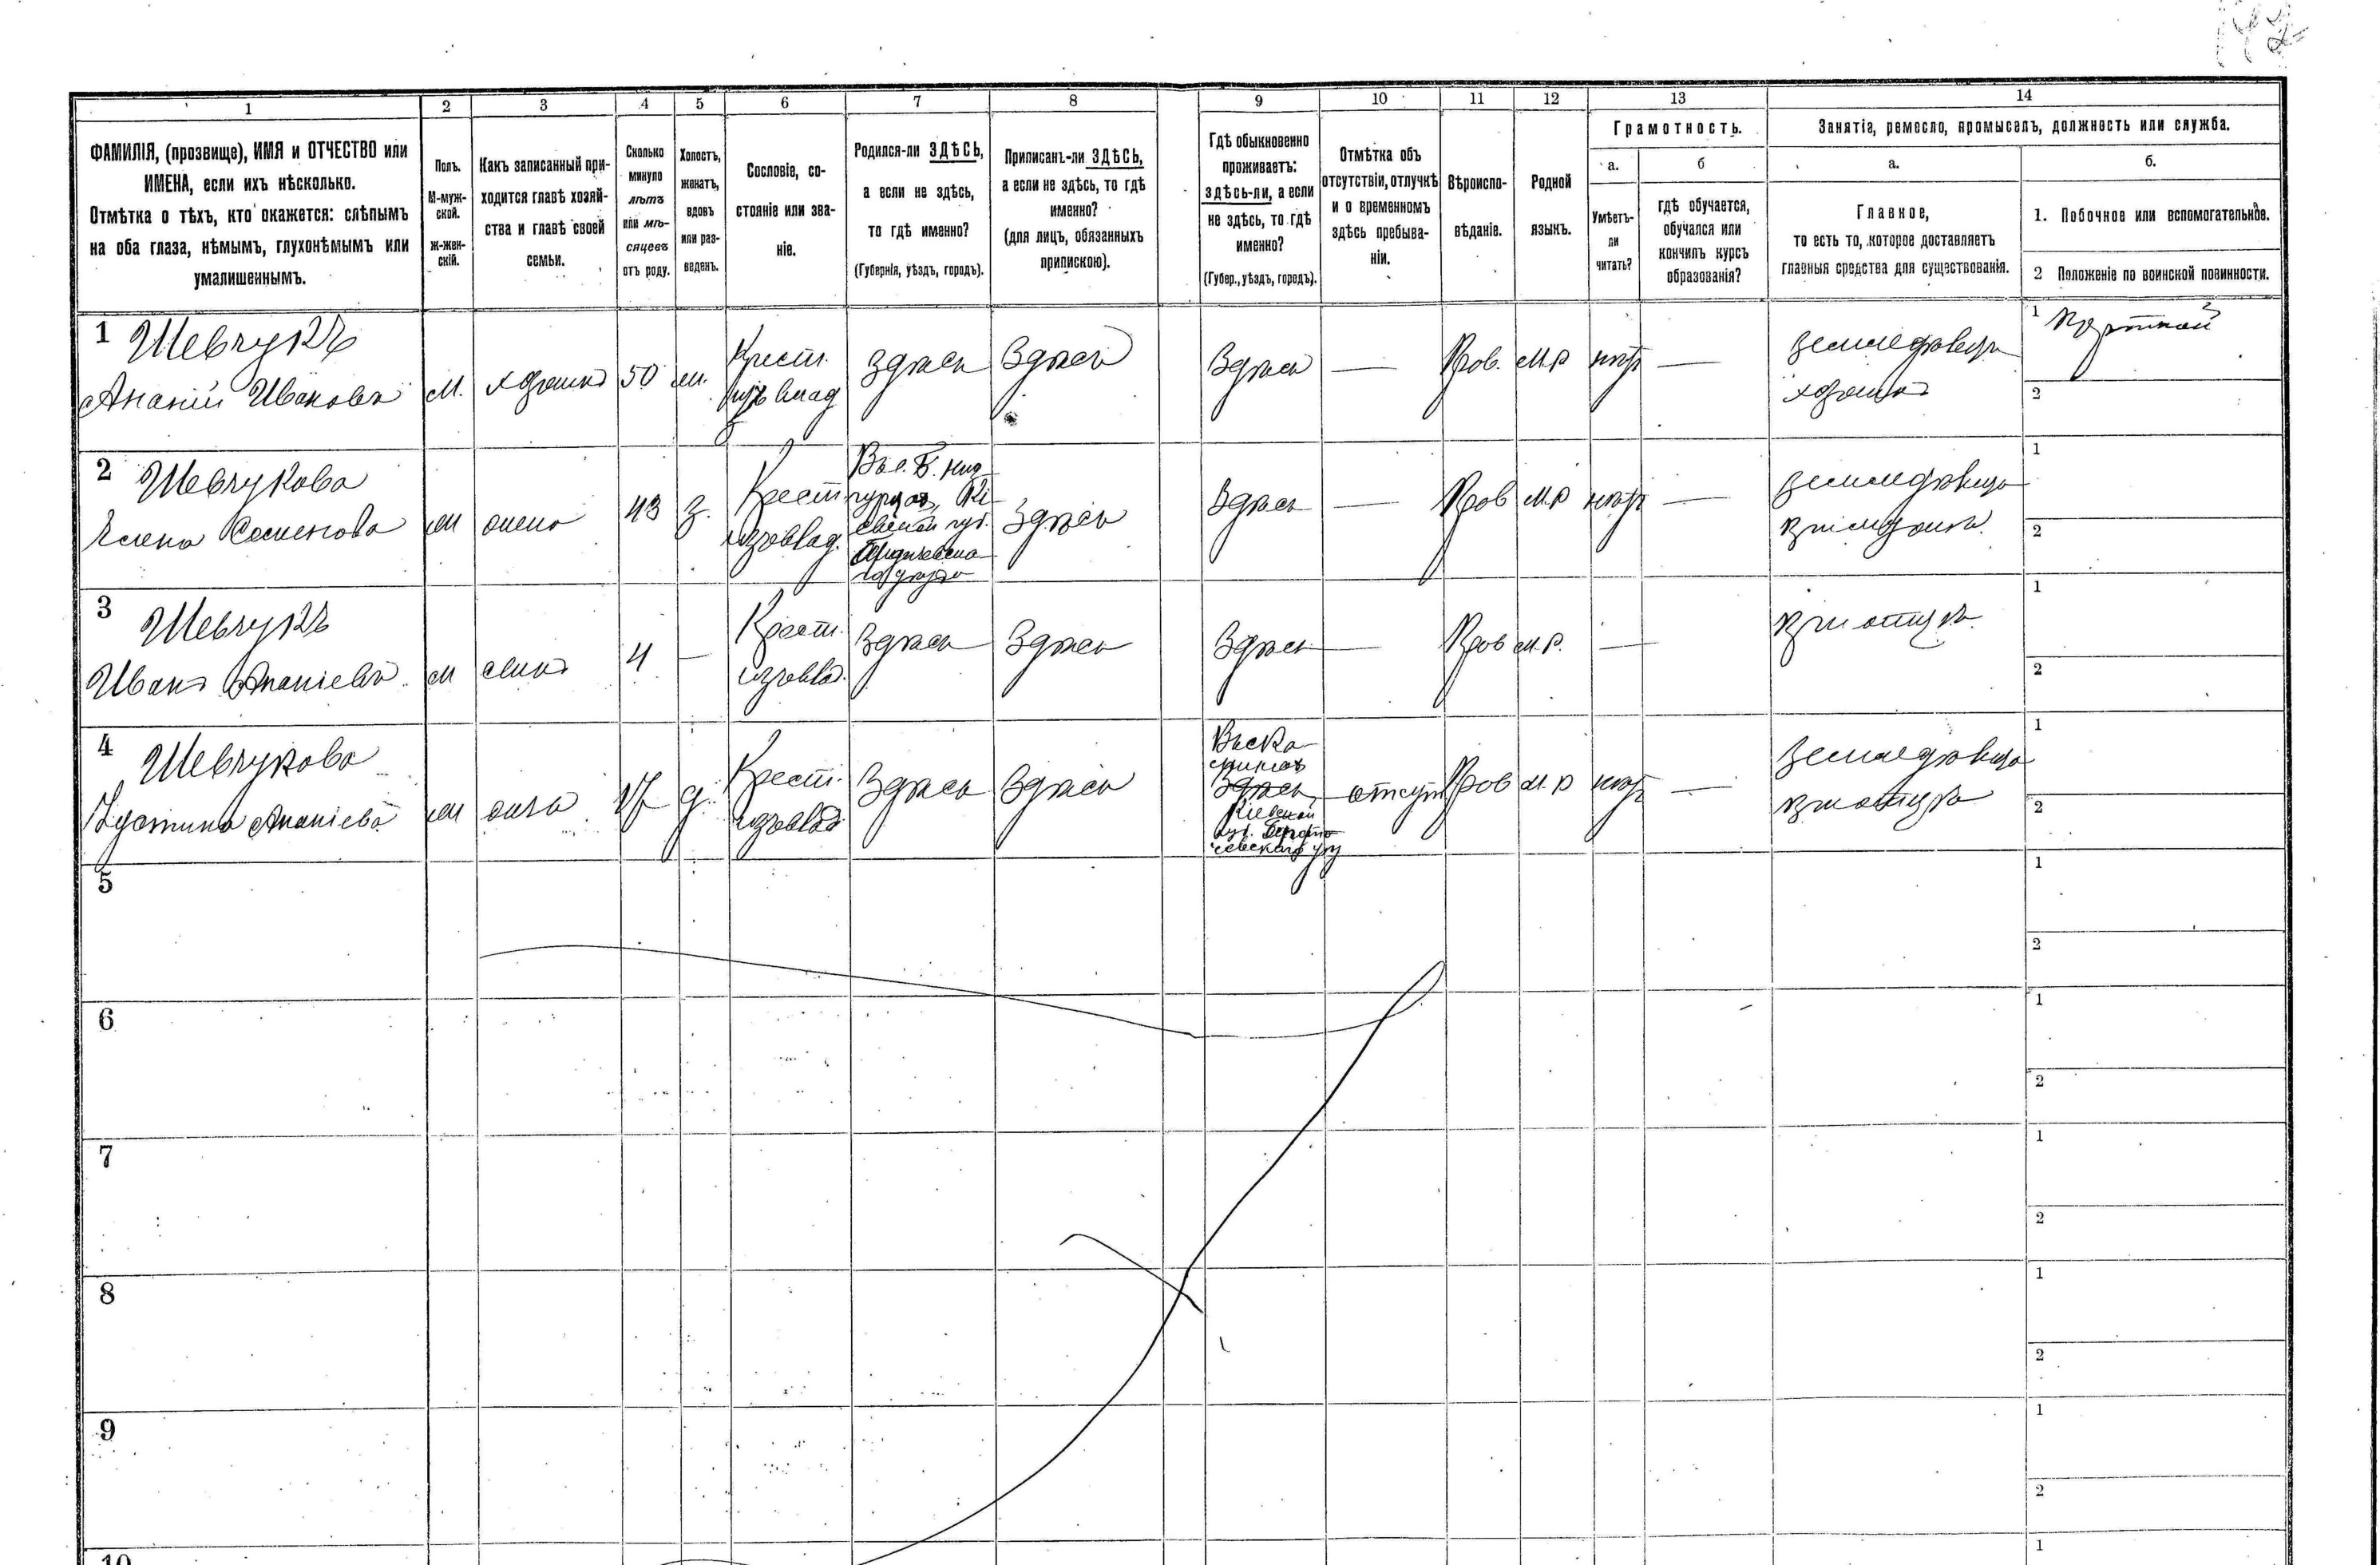 1 2 3 4 5 6 7 8 9 10 11 12 13 14
ФАМИЛІЯ, (прозвище), ИМЯ и ОТЧЕСТВО или
ИМЕНА, если ихъ нѣсколько.
Отмѣтка о тѣхъ, кто окажется: слѣпымъ
на оба глаза, нѣмымъ, глухонѣмымъ или
умалишеннымъ.
Полъ.
М-муж-
ской.
ж-жен-
скій.
Какъ записанный при-
ходится главѣ хозяй-
ства и главѣ своей
семьи.
Сколько
минуло
лѣтъ
или мѣ-
сяцевъ
отъ роду.
Холостъ,
женатъ,
вдовъ
или раз-
веденъ.
Сословіе, со-
стояніе или зва-
ніе.
Родился-ли ЗДѢСЬ,
а если не здѣсь,
то гдѣ именно?
(Губернія, уѣздъ, городъ).
Приписанъ-ли ЗДѢСЬ,
а если не здѣсь, то гдѣ
именно?
(для лицъ, обязанныхъ
припискою).
Гдѣ обыкновенно
проживаетъ:
здѣсь-ли, а если
не здѣсь, то гдѣ
именно?
(Губер., уѣздъ, городъ).
Отмѣтка объ
отсутствіи, отлучкѣ
и о временномъ
здѣсь пребыва-
ніи.
Вѣроиспо-
вѣданіе.
Родной
языкъ.
Грамотность.
а.
Умѣетъ-
ли
читать?
б
гдѣ обучается,
обучался или
кончилъ курсъ
образованія?
Занятіе, ремесло, промыселъ, должность или служба.
а.
Главное,
то есть то, которое доставляетъ
главныя средства для существованія.
б.
1. Побочное или вспомогательное.
2 Положеніе по воинской повинности.
1 Шевчукъ
Ананій Ивановъ
М. хозяинъ 50 ж.
Крест.
изъ влад
Здѣсь Здѣсь Здѣсь — Прав. М.Р нѣтъ —
земледѣлецъ
хозяинъ
1
2
2 Шевчукова
Елена Семенова
жена 43 з.
Крест
изъ влад.
Кі
евской губ.
Бердичевска
го уѣзда
Здѣсь Здѣсь — Прав М.Р нѣтъ —
земледѣлица
1
2
3 Шевчукъ
Иванъ Ананіевъ
м сынъ 4 —
Крест.
изъ влад.
Здѣсь Здѣсь Здѣсь — Прав М.Р. —
при отцѣ
1
2
4 Шевчукова
Устина Ананіева
дочь 17 д.
Крест.
изъ влад
Здѣсь Здѣсь
Кіевской
губ. Берди
чевскаго уѣз
отсут Прав М.Р нѣтъ —
земледѣлица
при отцѣ
1
2
5
1
2
6
1
2
7
1
2
8
1
2
9
1
2
10
1